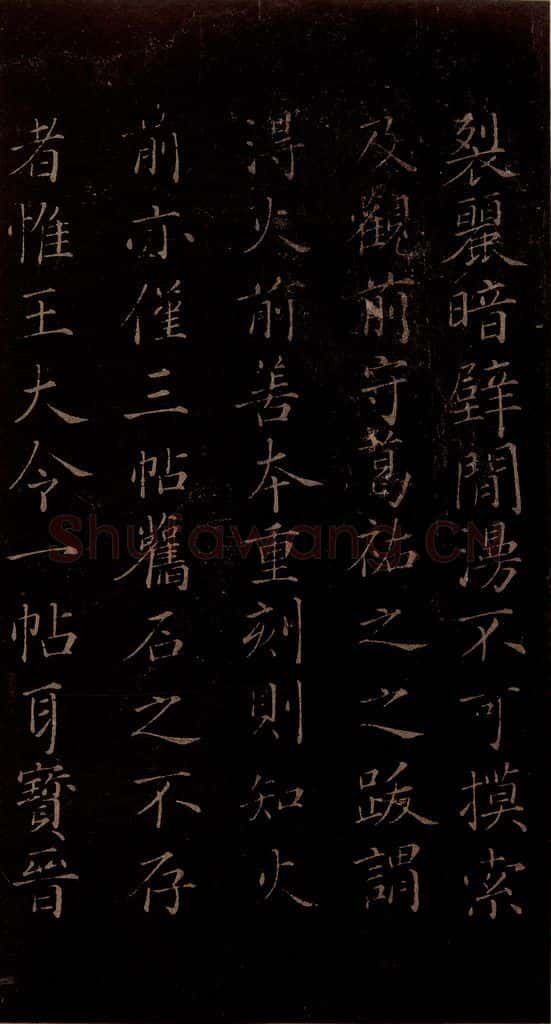 裂麗暗壁間漫不可摸索
及觀前守葛祐之之跋謂
得火前善本重刻則知火
前亦僅三帖舊石之不存
者惟王大令一帖耳寶晉
Shufawang.CN